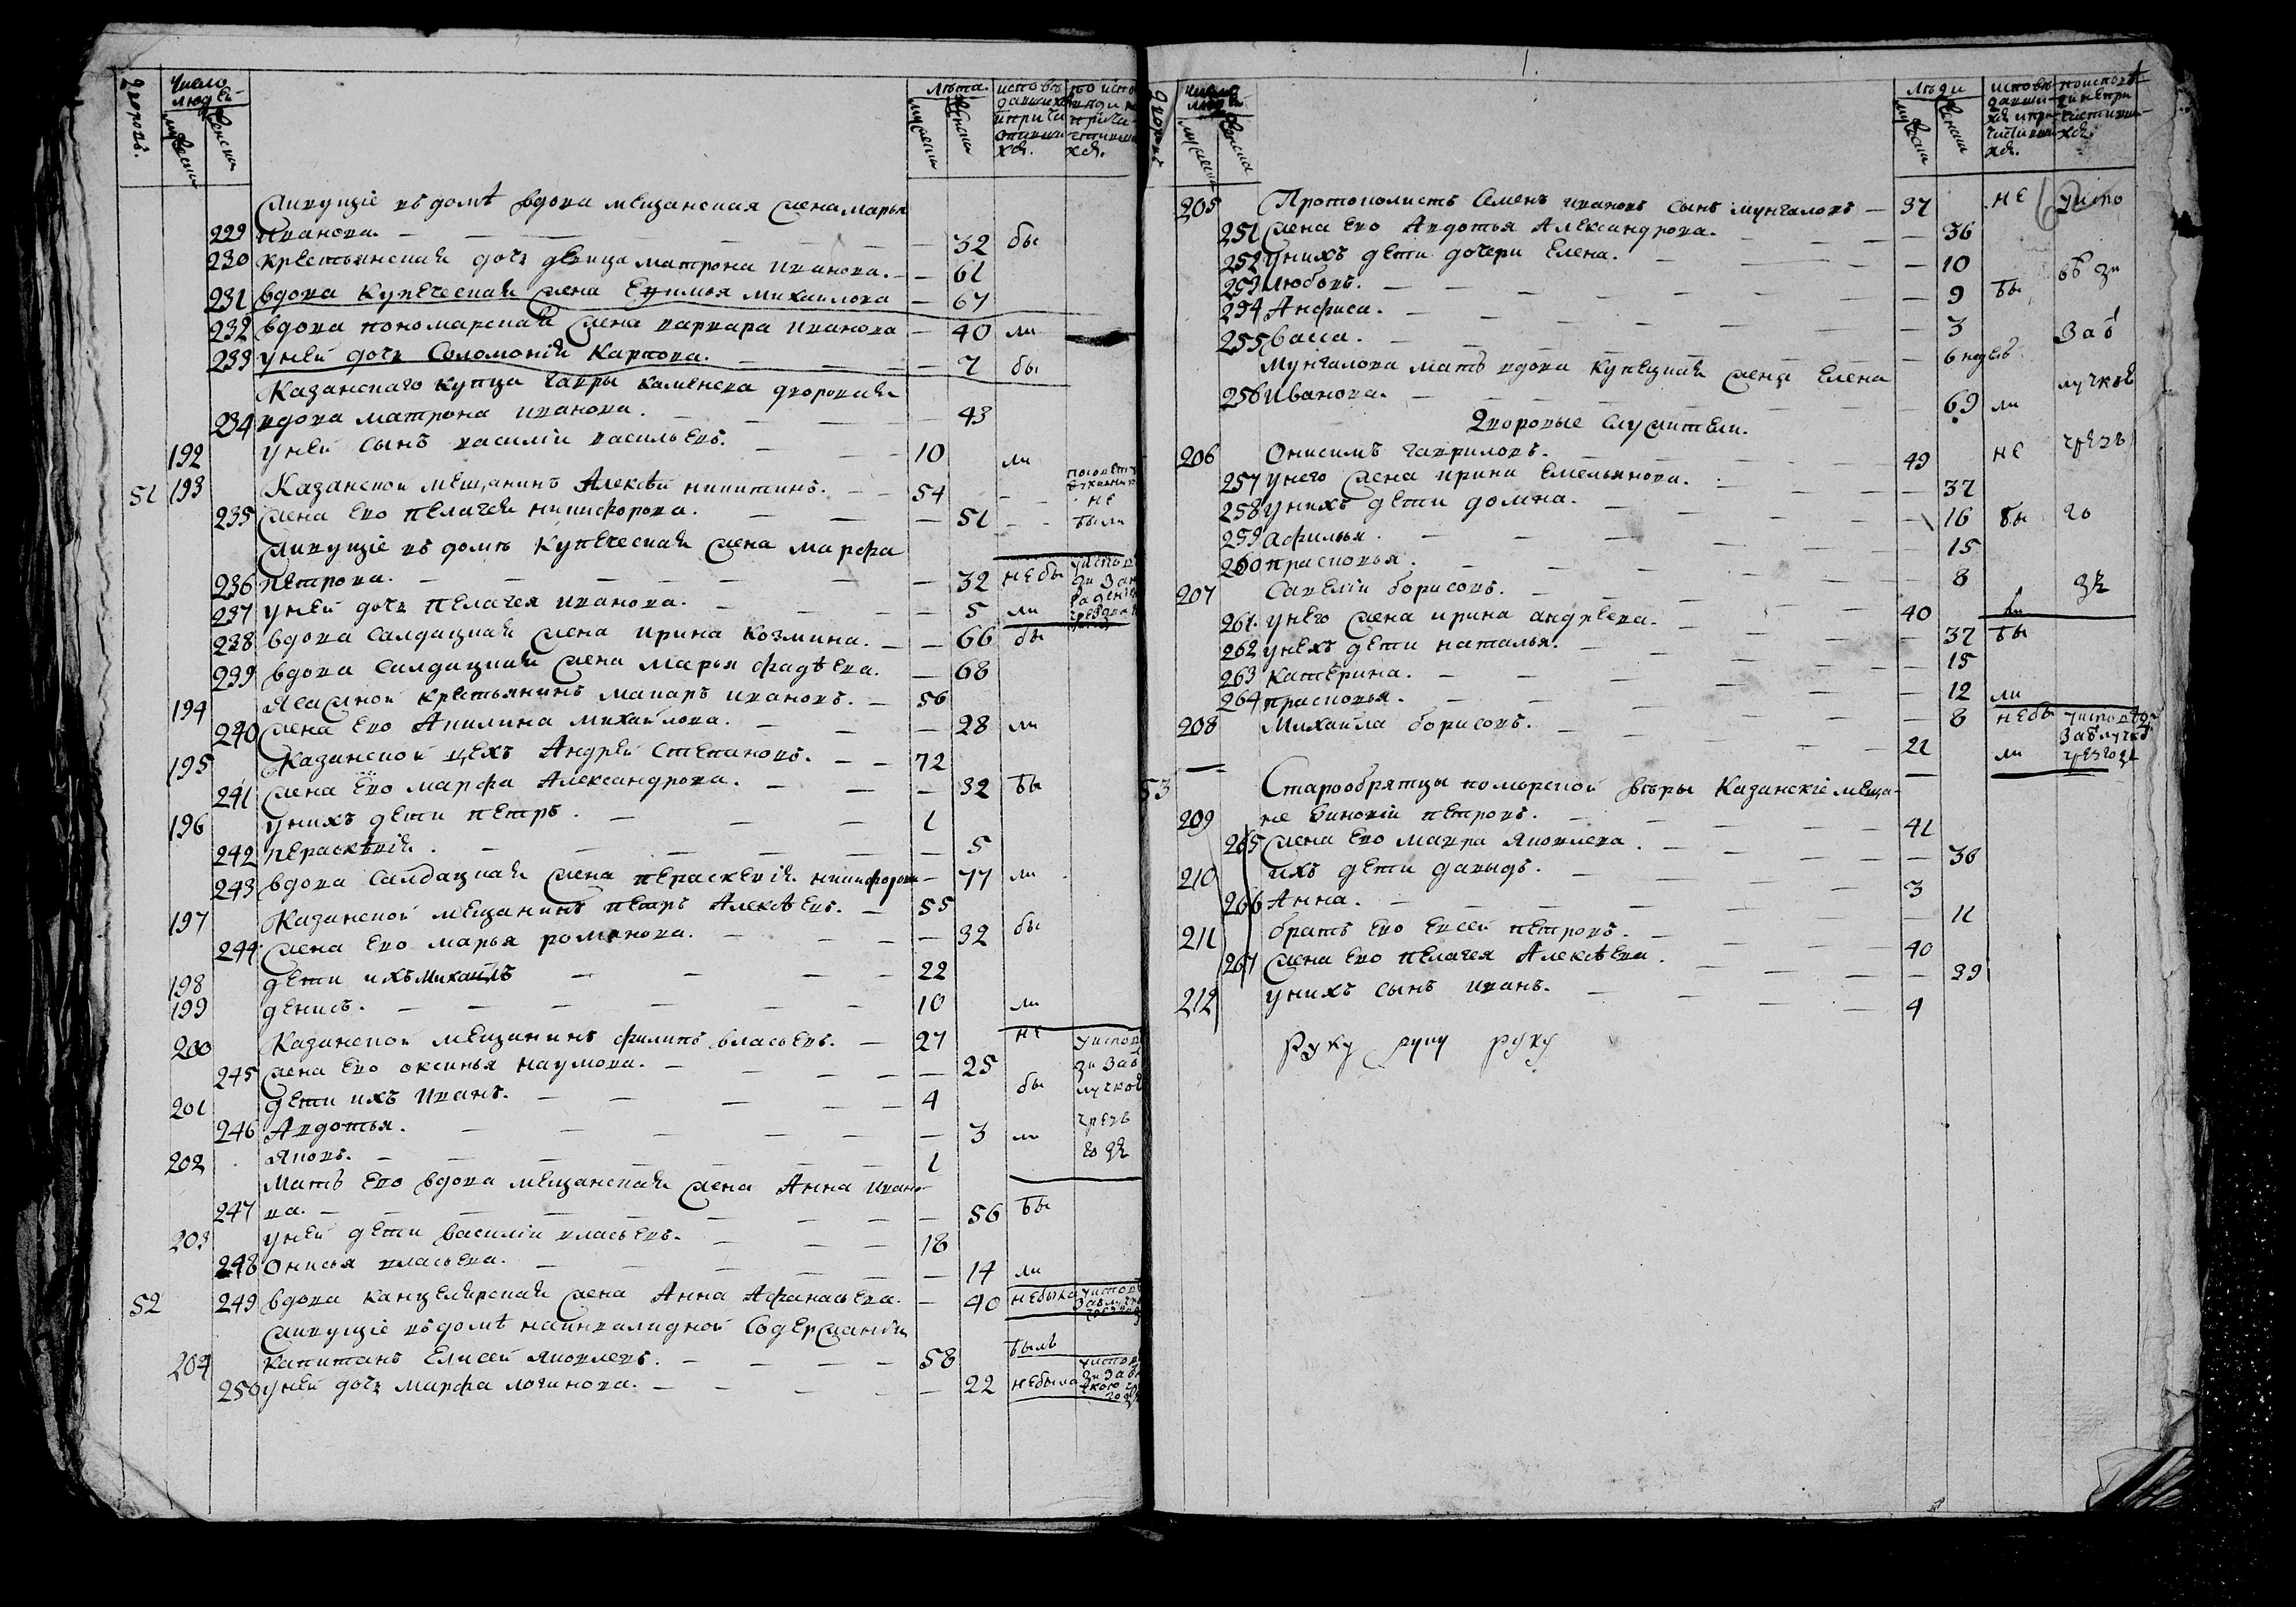 дворовъ. Число людей мужеска женска лѣта. мужеска женска исповѣдавшихся и причастившихся. по исповѣди не причастившихся.
живущіе въ домѣ вдова мещанская жена марья
229 Иванова. — — 32 бы
230 крестьянская дочь девица матрона иванова. — 61
231 вдова купеческая жена Еѳимья михаилова — 67
232 вдова пономарская жена варвара иванова — 40 ли
233 у ней дочь Соломонія Карпова. — 7 бы
Казанскаго купца гавры каменева дворовая
234 вдова матрона иванова. — 43
192 у ней сынъ василіи васильевъ. — 10 ли
51 193 Казанской мещанинъ Алексѣй никитинъ. — 54
235 жена ево пелагея никифорова. — 51 не были
живущіе въ домѣ купеческая жена марфа
236 петрова. — 32 не бы
237 у ней дочь пелагея иванова. — 5 ли
238 вдова салдацкая жена ирина козмина. — 66 бы
239 вдова салдацкая жена марья фадѣева. — 68
194 Ясашной крестьянинъ макаръ ивановъ. — 56
240 жена ево Акилина михайлова. — 28 ли
195 Казанской цехъ Андрей Степановъ. — 72
241 жена ево марфа Александрова. — 32 бы
196 у нихъ дети петръ. — 1
242 перасковія. — 5
243 вдова салдацкая жена перасковія никифорова — 77 ли
197 Казанской мещанинъ петръ Алексѣевъ. — 55
244 жена ево марья романова. — 32 бы
198 дети ихъ михаилъ — 22
199 денисъ. — 10 ли
200 Казанской мещанинъ филипъ власьевъ. — 27 не
245 жена ево оксинья наумова. — 25
201 дети ихъ иванъ. — 4 бы
246 Авдотья. — 3 ли чрезъ
202 яковъ. — 1
мать ево вдова мещанская жена Анна ивано-
247 ва. — 56 бы
203 у ней дети василіи власьевъ. — 18
248 онисья власьева. — 14 ли
52 249 вдова канцелярская жена Анна Афанасьева. — 40 не была
живущіе въ домѣ на инвалидной содержаніи
204 капитанъ Елисей яковлевъ. — 58 былъ
250 у ней дочь марфа логинова. — 22 не была
дворовъ число людей мужеска женска люди мужеска женска исповѣдавшихся и причастившихся. по исповѣди не причастившихся.
205 Протоколистъ Семенъ ивановъ сынъ мунгаловъ — 37 не
251 жена ево Авдотья Александрова. — 36
252 у нихъ дети дочери Елена. — 10
253 любовь. — 9 бы
254 Анфиса. — 3
255 васса. — 6 недель
мунгалова мать вдова купецкая жена Елена
256 Иванова. — 69 ли
Дворовые служители.
206 Онисимъ гавриловъ. — 49 не чрезъ
257 у него жена ирина Емельянова. — 37
258 у нихъ дети домна. — 16 бы го
259 афимья. — 15
260 прасковья. — 8
207 Савелій борисовъ. — 40 ли
261. у него жена ирина андреева. — 37 бы
262 у нехъ дети наталья. — 15
263 катерина. — 12 ли
264 прасковья. — 8 не бы
208 Михаила борисовъ. — 22 ли
53 Старообрятцы поморской вѣры Казанскіе меща-
209 не Зиновій петровъ. — 41
265 жена ево мавра яковлева. — 36
210 ихъ дети давыдъ. — 3
266 Анна. — 11
211 братъ ево Евсей петровъ. — 40
267 жена ево пелагея Алексѣева. — 39
212 у нихъ сынъ иванъ. — 4
руку руку руку